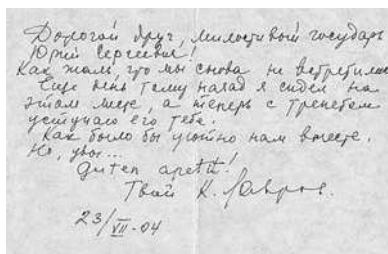 Дорогой друг, милостивый государь
Юрий Сергеевич!
Как жаль, что мы снова не встретились
Еще день тому назад я сидел на
этом месте, а теперь с трепетом
уступаю его тебе.
Как было бы уютно нам вместе.
Но, увы...
Guten apetit!
Твой К. Лавров.
23/VII-04